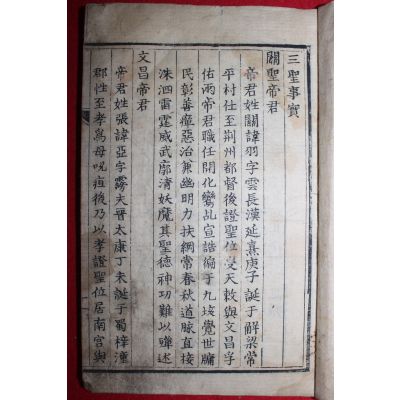 三聖事實
關聖帝君
帝君姓關諱羽字雲長漢延熹庚子誕于解梁常
平村仕至荆州都督後證聖位受天敕與文昌孚
佑兩帝君職任開化鸞乩宣誥徧于九垓覺世牖
民彰善癉惡治兼幽明力扶綱常春秋道脉直接
洙泗雷霆威武廓淸妖魔其聖德神功難以殫述
文昌帝君
帝君姓張諱亞字霧夫晋太康丁未誕于蜀梓潼
郡性至孝爲母吮疽後乃以孝證聖位居南宮與